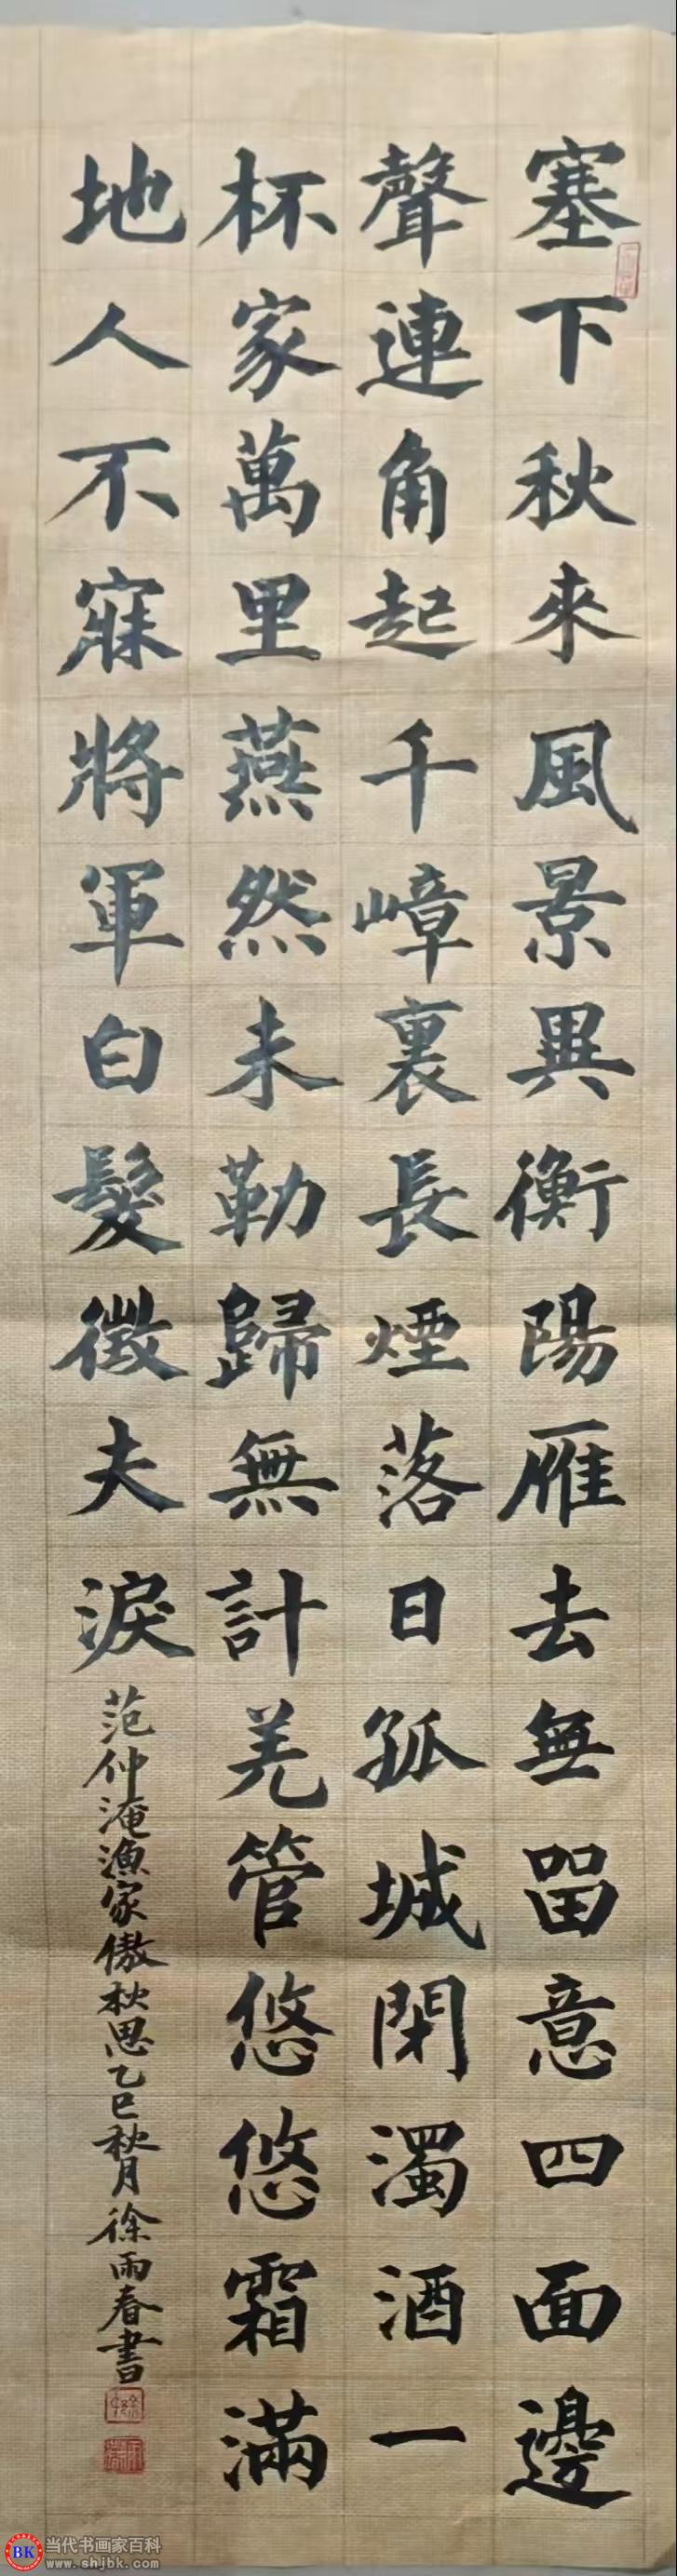 塞下秋來風景異衡陽雁去無留意四面邊
聲連角起千嶂裏長煙落日孤城閉濁酒一
杯家萬里燕然未勒歸無計羌管悠悠霜滿
地人不寐將軍白髮徵夫淚
范仲淹漁家傲秋思乙巳秋月徐雨春書
BK
当代书画家百科
www.shjbk.com